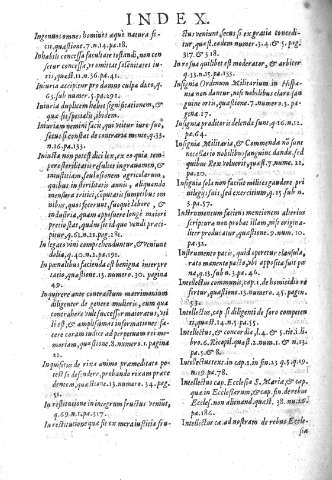 INDEX.
Ingenuos omnes homines aqua natura fi
cit, quæstione.7.n.14.pa.18.
Inhabili concessa facultate testandi, non cen
setur concessa, omissa solennitate iu-
ris, quæst.11.n.36.pa.41.
Iniuria accipitur pro damno culpa dato, q.
65. sub numer.5. pa.292.
Iniuria duplicem habet significationem, &
qua sit specialis, ibidem.
Iniuriam nemini facit, qui vtitur iure suo,
secus si constat de contraria mente, q.33.
n.16.pa.133.
Iniusta non potest dici lex, ex eo quia tem-
pore sterilitatis est
iniustitiam, seu lusionem agricolarum,
quibus in sterilitatis anni, aliquando
bus, quos fecerunt, suoque labore, &
industria, quam appossuere longè maiori
pretio stat, quàm sit id quo vendi præci-
pitur, q.62.n.21.pa.281.
In legato vini comprehenduntur, & veniunt
dolia, q.40.n.2.pa.191.
In pœnalibus facienda est benigna interpre
tatio, quæstione.13. numero. 30. pagina
49.
Inquirere antè contractum matrimonium
diligenter de genere mulieris, cum qua
contrahere vult successor maioratus, vti
le est, & amplissimas informationes fa-
cere coram iudice ad perpetuam rei me-
moriam, quæstione.8. numero.1. pagina
22.
Inquisitus de rixa animo præmeditato po-
test se defendere, probando rixam præce
dentem, quæstione.13. numero.34. pag.
51.
In restitutione in integrum fructus veniūt,
q.69.n.1.pa.317.
In restitutione quæ fit ex mera iustitia fru-
ctus veniunt, secus si ex gratia concedi-
tur, quæst. eadem numer.3.4.&.5.pagi.
317.& 318.
In re sua quilibet est moderator, & arbiter,
q.33.n.15.pa.133.
Insignia Ordinum Militarium in Hispa-
nia non dantur, nisi nobilibus claro san
guine ortis, quæstione.7.numero.3. pa-
gina.17.
Insignia proditoris delenda sunt, q.16.n.12.
pa.64.
Insignia Militaria, & Commenda nō sunt
necessario nobilibus sanguine danda, sed
quibus Rex voluerit, quæst.7. nume.22.
pa.20.
Insignia sola non faciunt milites gaudere pri
uilegijs, sed exercitium, q.15. sub n.
3.pa.57.
Instrumentum faciens mentionem alterius
scripturæ non probat idem, nisi origina-
liter producatur, quæstione.9.num.10.
pa.32.
Instrumenta pacis, quid operetur clausula,
rato manente pacto, vbi apposita suit pœ
na, q.13.sub n.3.pa.46.
Intellectus communis, cap.1. de homicidio re
fertur, quæstione.13. numero.45. pagin.
53.
Intellectus, cap. si diligenti de foro competen
ti, quæst.14.n.5.pa.55.
Intellectus, & concordia, l.4. & .5.tit.3.li
bro.6. Recopil. quæst.1.num.2. & n.13.
pa.5.& 8.
Intellectus text. in cap.1. in fin.23 q.5. q.19.
n.19.pa.78.
Intellectus cap. Ecclesia S. Mariæ, & cap.
quæ in Ecclesiarum, & cap. fin. de rebus
Eccles. non alienand. quæst. 38. nu.12.
pa.186.
Intellectus ca. ad nostram de rebus Eccle-
siæ